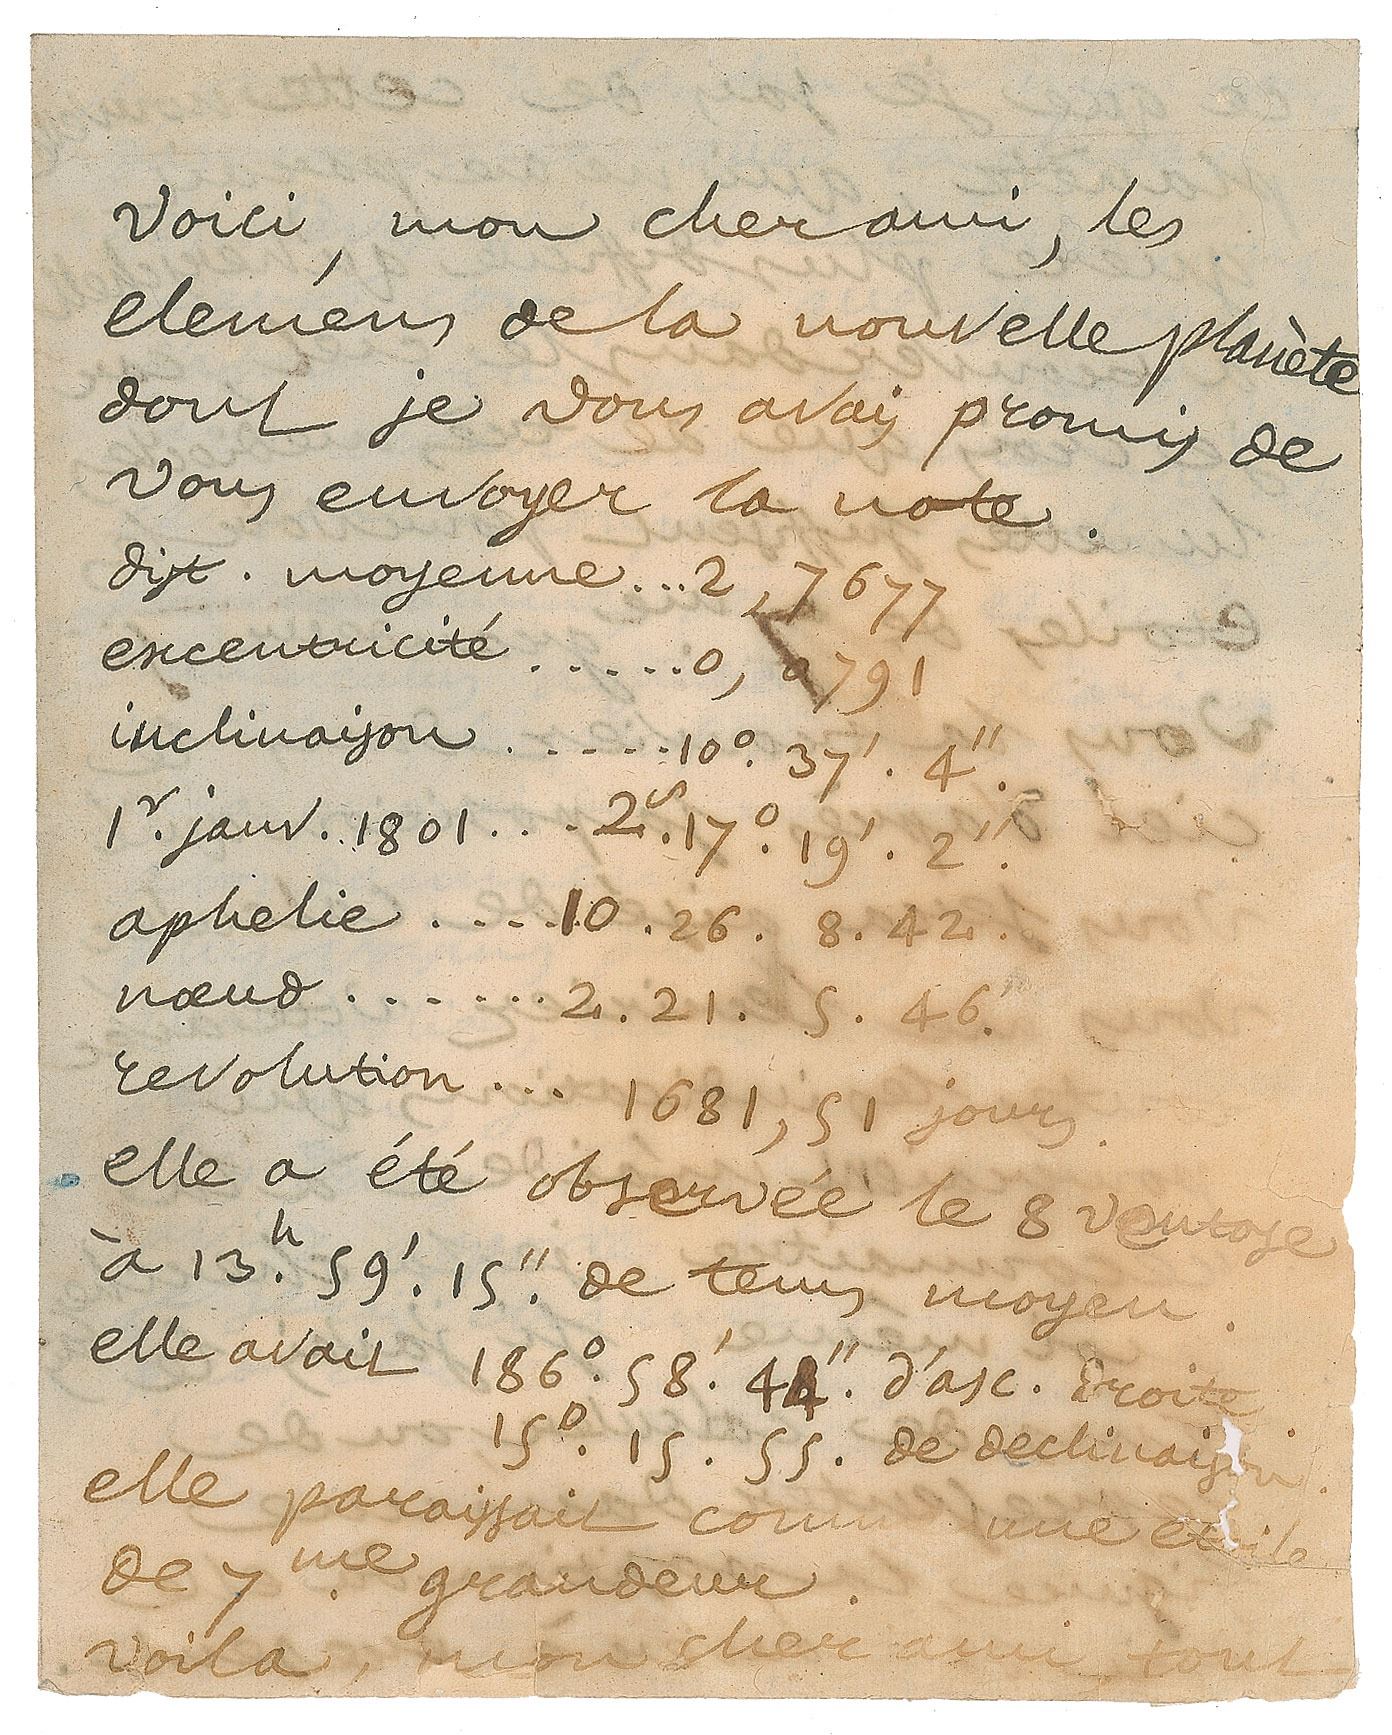 Voici, mon cher ami, les
elemens de la nouvelle planète
dont je vous avais promis de
vous envoyer la note.
dist. moyenne...2,7677
excentricité.....0,0791
inclinaison.....10°. 37'. 4".
1r. janv. 1801....2s.17°. 19'. 2".
aphelie....10.26. 8.42.
nœud.......2.21. 5. 46.
revolution... 1681,51 jours.
elle a été observée le 8 ventose
à 13h. 59'. 15". de tems moyen.
elle avait 186°. 58'. 44". d'asc. droite
15°. 15. 55. de declinaison.
elle paraissait comme une etoile
de 7me. grandeur.
voila, mon cher ami, tout